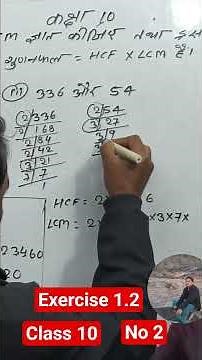 कक्षा 10
LCM ज्ञात कीजिए तथा
गुणनफल = HCF X LCM है।
336 और 54
2 336
2 168
2 84
2 42
3 21
7 7
1
2 54
3 27
3 9
HCF = 2
6
LCM = 2
X3X7X
23460
20
Exercise 1.2
Class 10
No 2